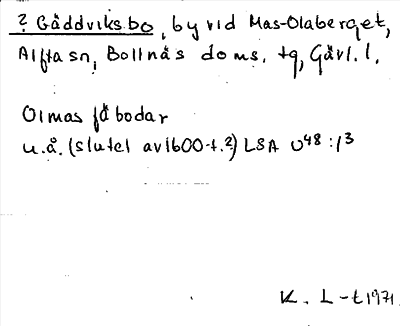 ? Gåddviksbo, by vid Mas-Olaberget,
Alfta sn, Bollnäs doms. tg, Gävl. l.
Olmas fäbodar
u.å. (slutet av 1600-t.?) LSA U48:1/3
K. L-t 1971